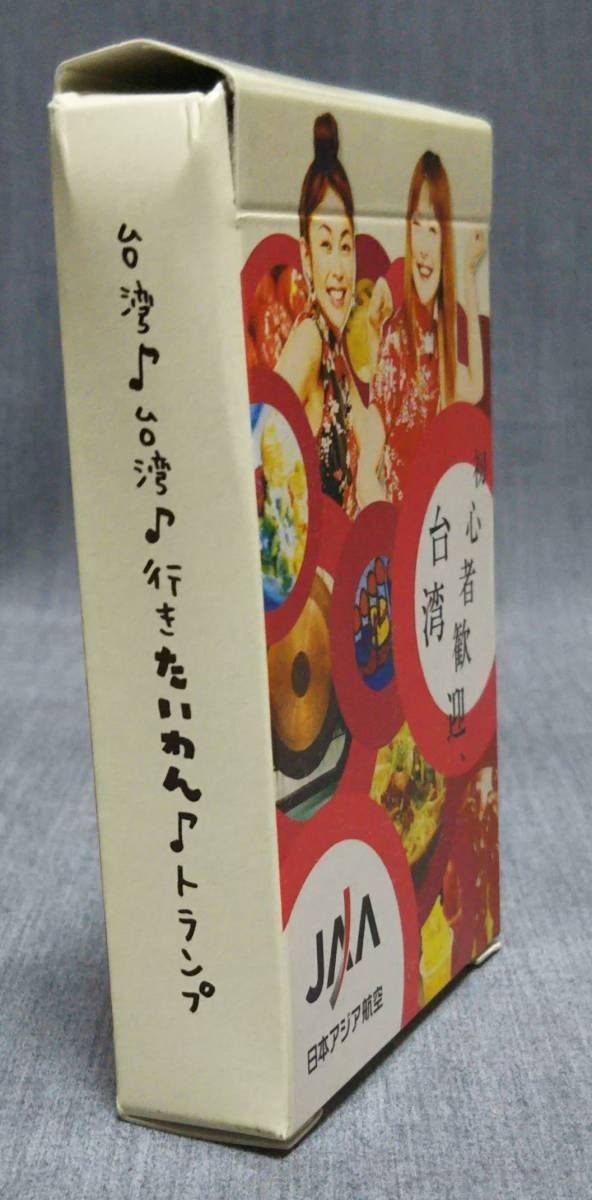 台湾♪台湾♪行きたいわん♪トランプ
初心者歓迎、
台湾
JAA
日本アジア航空